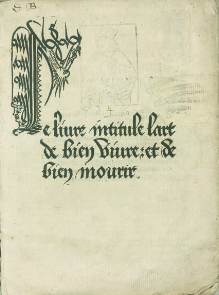 S B
Le liure intitule lart
de bien viure: et de
bien mourir.